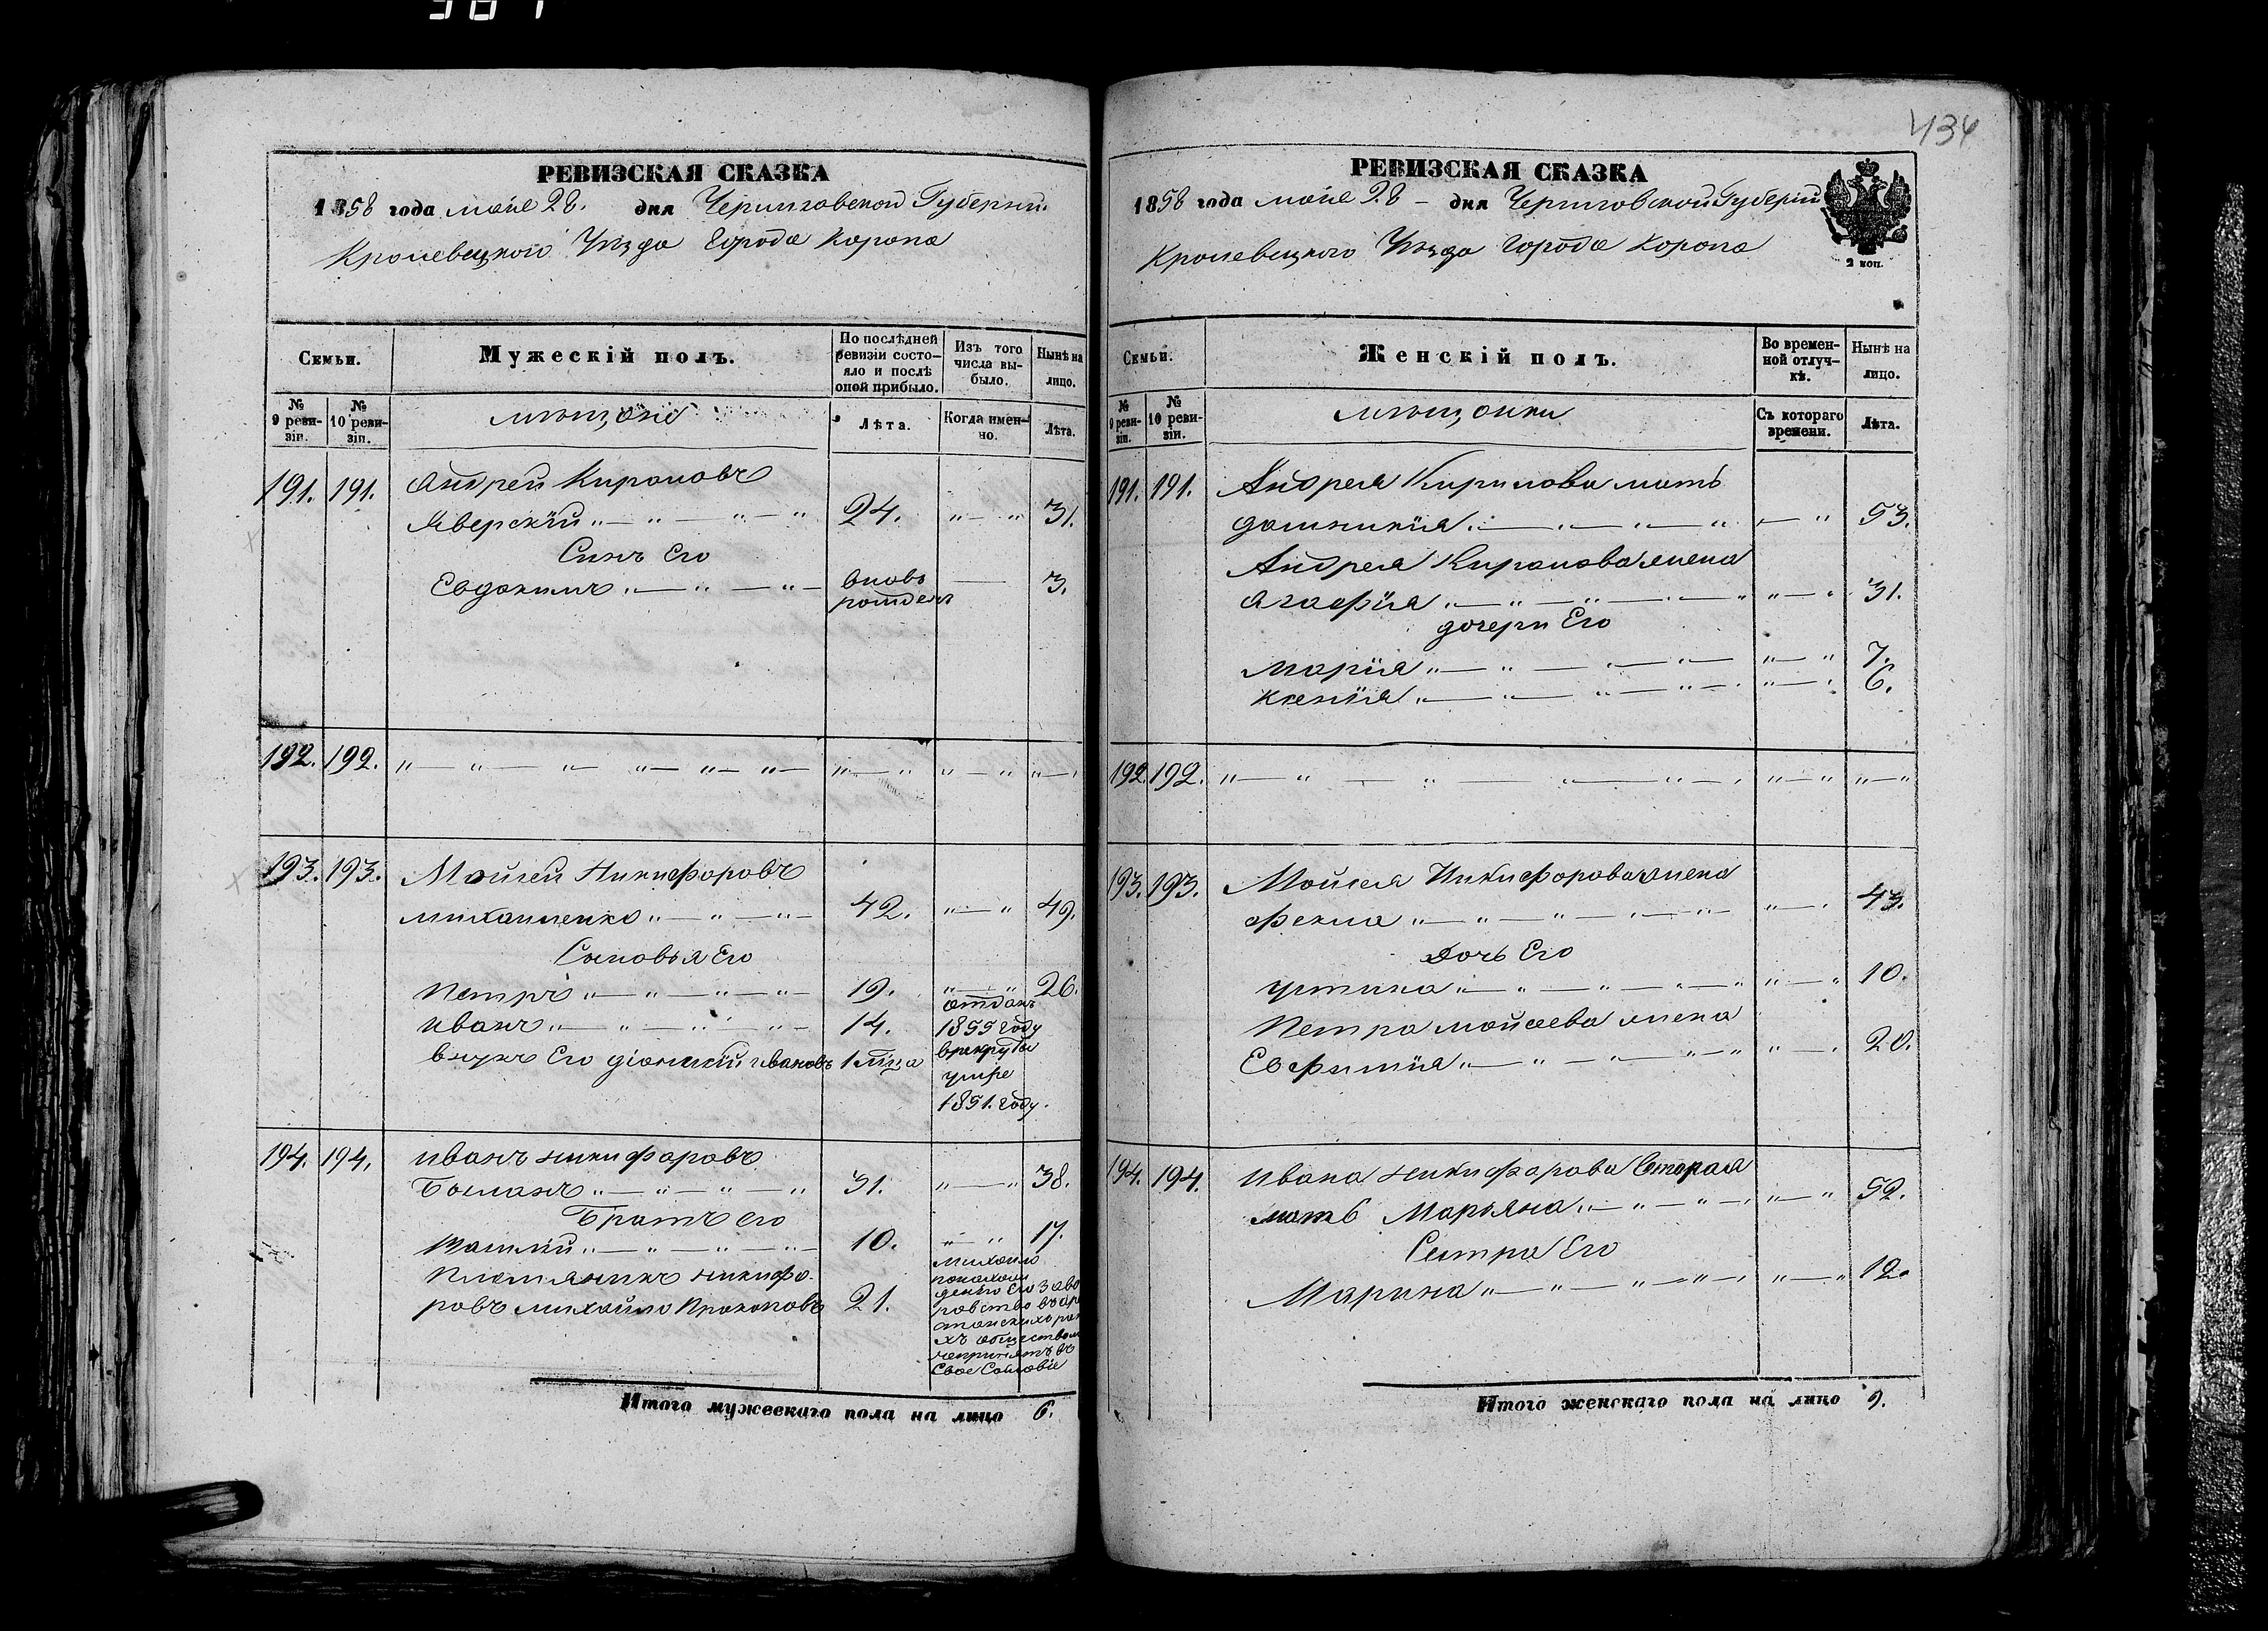 434
РЕВИЗСКАЯ СКАЗКА
1858 года мая 28. дня Черниговской Губерніи
Кролевецкого Уѣзда Города Коропа
Семьи.
Мужескій полъ.
По послѣдней ревизіи состояло и послѣ оной прибыло.
Изъ того числа выбыло.
Нынѣ на лицо.
№ 9 ревизіи.
№ 10 ревизіи.
мѣщане
Лѣта.
Когда именно.
Лѣта.
191. 191. Андрей Кириловъ
Яверскій 24. 31.
Сынъ Его
Евдокимъ вновь рожденъ 3.
192. 192.
193. 193. Мойсей Никифоровъ
Михайленко 42. 49.
Сыновья Его
Петръ 19. 26.
Иванъ 14. отданъ 1855 году врекруты
внукъ Его Діонисій Ивановъ 1 мѣсяца умре 1851. году.
194. 194. Иванъ Никифоровъ
Боманъ 31. 38.
Братъ его
Василій 10. 17.
Племяникъ Никифоровъ Михайло Прокоповъ 21. Михайло
обществомъ
непринятъ въ
Свое Сословіе
Итого мужескаго пола на лицо 6.
РЕВИЗСКАЯ СКАЗКА
1858 года мая 28 дня Черниговской Губерніи
Кролевецкого Уѣзда Города Коропа
2 коп.
Семьи.
Женскій полъ.
Во временной отлучкѣ.
Нынѣ на лицо.
№ 9 ревизіи.
№ 10 ревизіи.
мѣщанки
Съ котораго времени.
Лѣта.
191. 191. Андрея Кирилова мать
Домникія 53.
Андрея Кирилова жена
Агафія 31.
дочери Его
Марія 7.
Ксенія 6.
192 192.
193. 193. Мойсея Никифорова жена
Фекла 43.
Дочь Его
Устина 10.
Петра Мойсеева жена
Евфимія 20.
194. 194. Ивана Никифорова Вторая
мать Марьяна 52.
Сестра Его
Марина 12.
Итого женскаго пола на лицо 9.